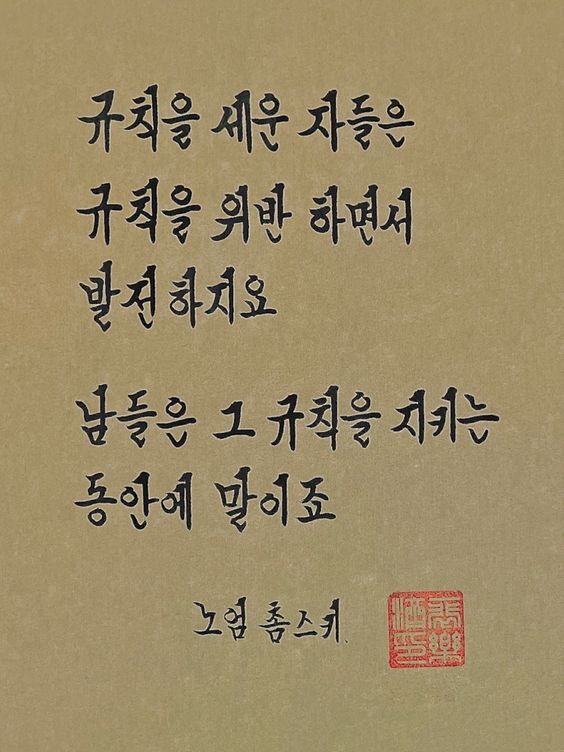 규칙을 세운 자들은
규칙을 위반 하면서
발전하지요
남들은 그 규칙을 지키는
동안에 말이죠
노엄 촘스키.